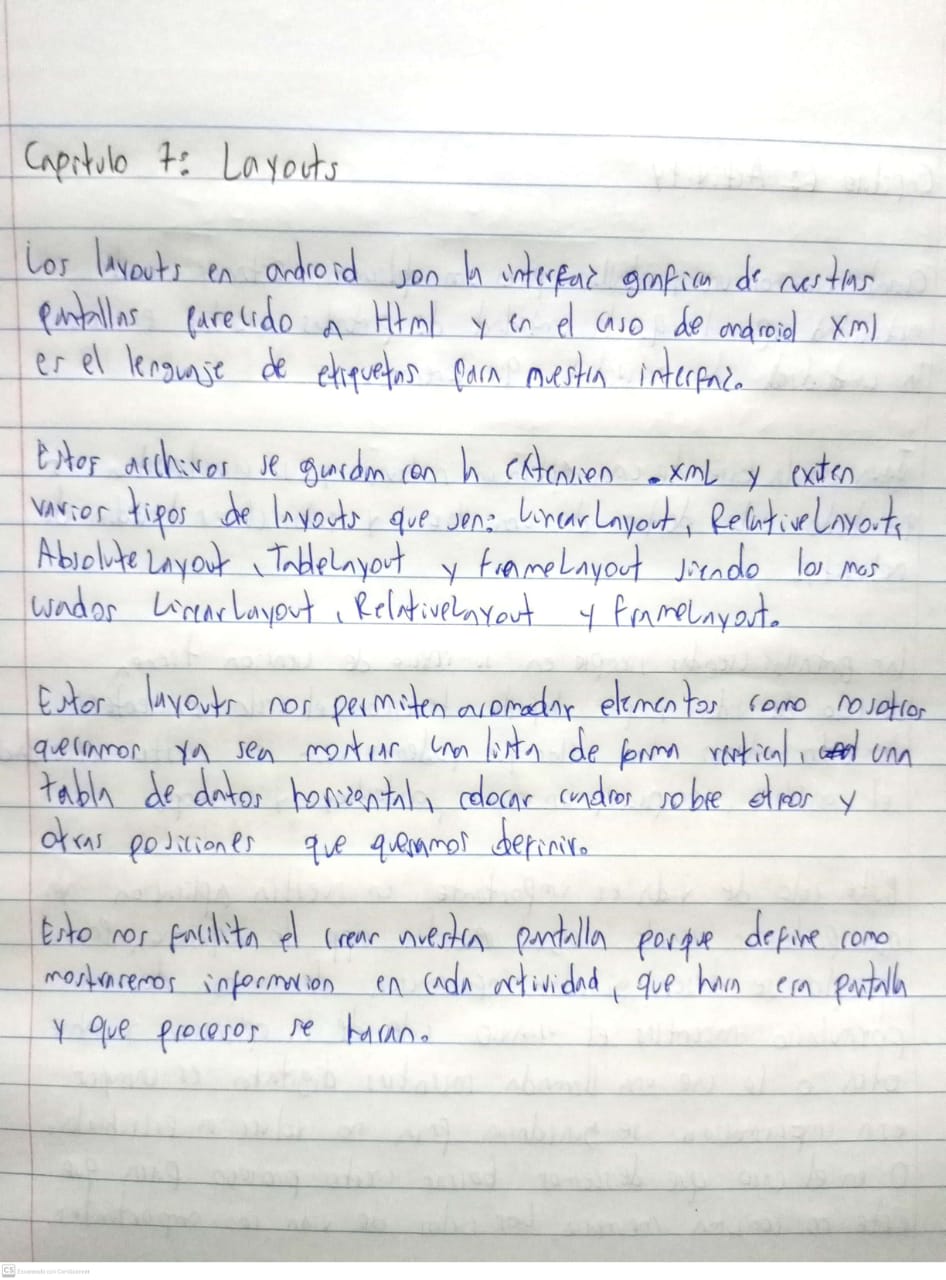 Capitulo 7: Layouts
Los layouts en android son la interfaz grafica de nestras
pantallas parecido a Html y en el caso de android Xml
es el lenguaje de etiquetas para nuestra interfaz.
Estos archivos se guardan con la extension .xmL y exiten
varios tipos de layouts que son: LinearLayout, RelativeLayout,
AbsoluteLayout, TableLayout y FrameLayout siendo los mas
usados LinearLayout, RelativeLayout y FrameLayout.
Estos layouts nos permiten acomodar elementos como nosotros
queramos ya sea mostrar una lista de forma vertical, una
tabla de datos horizontal, colocar cuadros sobre otros y
otras posiciones que queramos definir.
Esto nos facilita el crear nuestra pantalla porque define como
mostraremos informacion en cada actividad, que hara esa pantalla
y que procesos se haran.
CS Escaneado con CamScanner